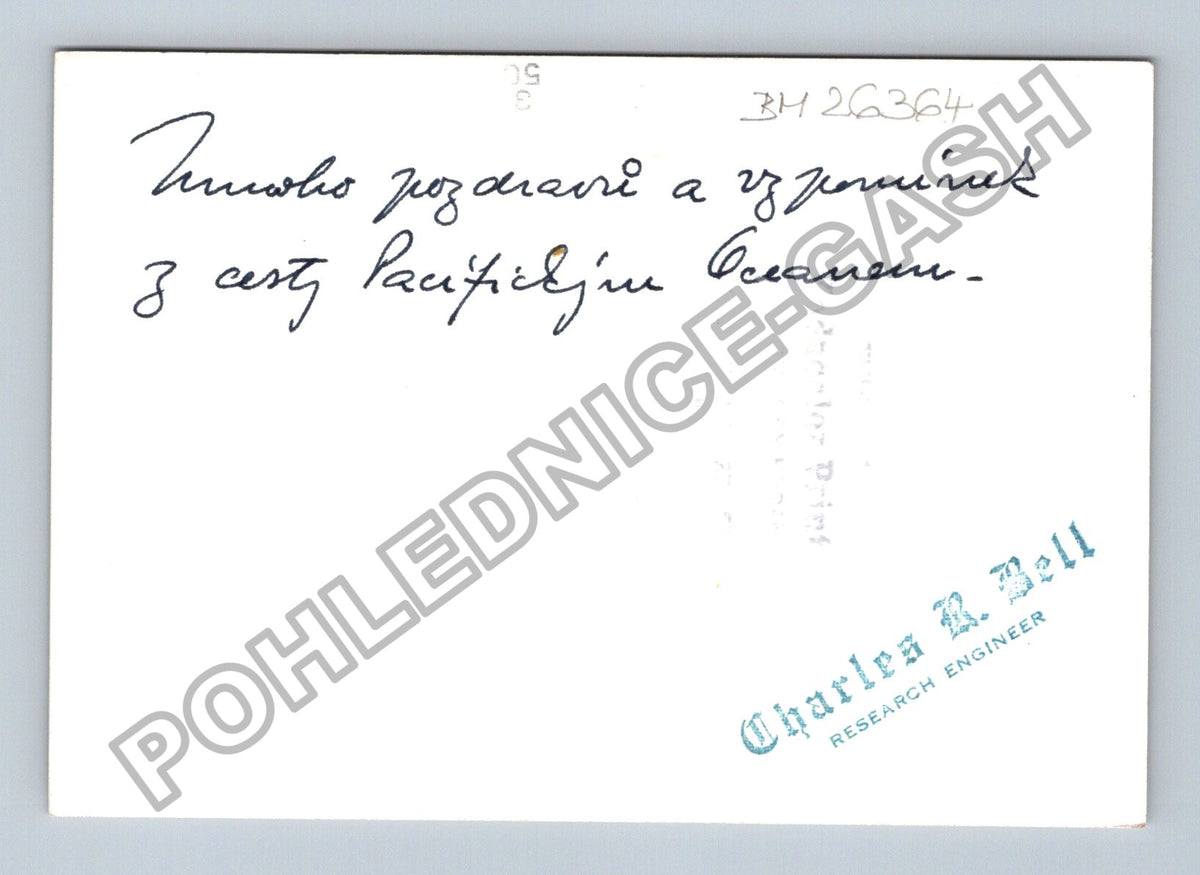 3
50
BM 26364
Mnoho pozdravů a vzpomínek
z cesty Pacifickým Oceanem -
POHLEDNICE-GASH
Charles R. Bell
RESEARCH ENGINEER